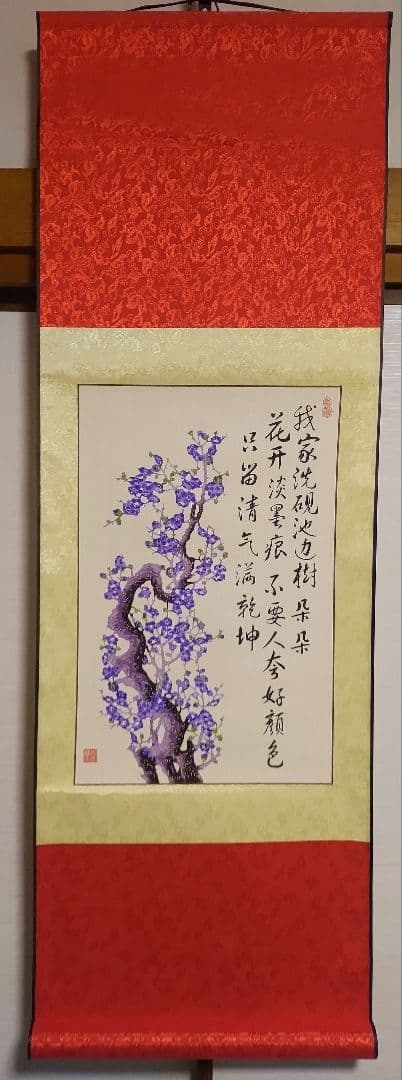 我家洗砚池边樹朵朵
花开淡墨痕不要人夸好顏色
只留清气满乾坤